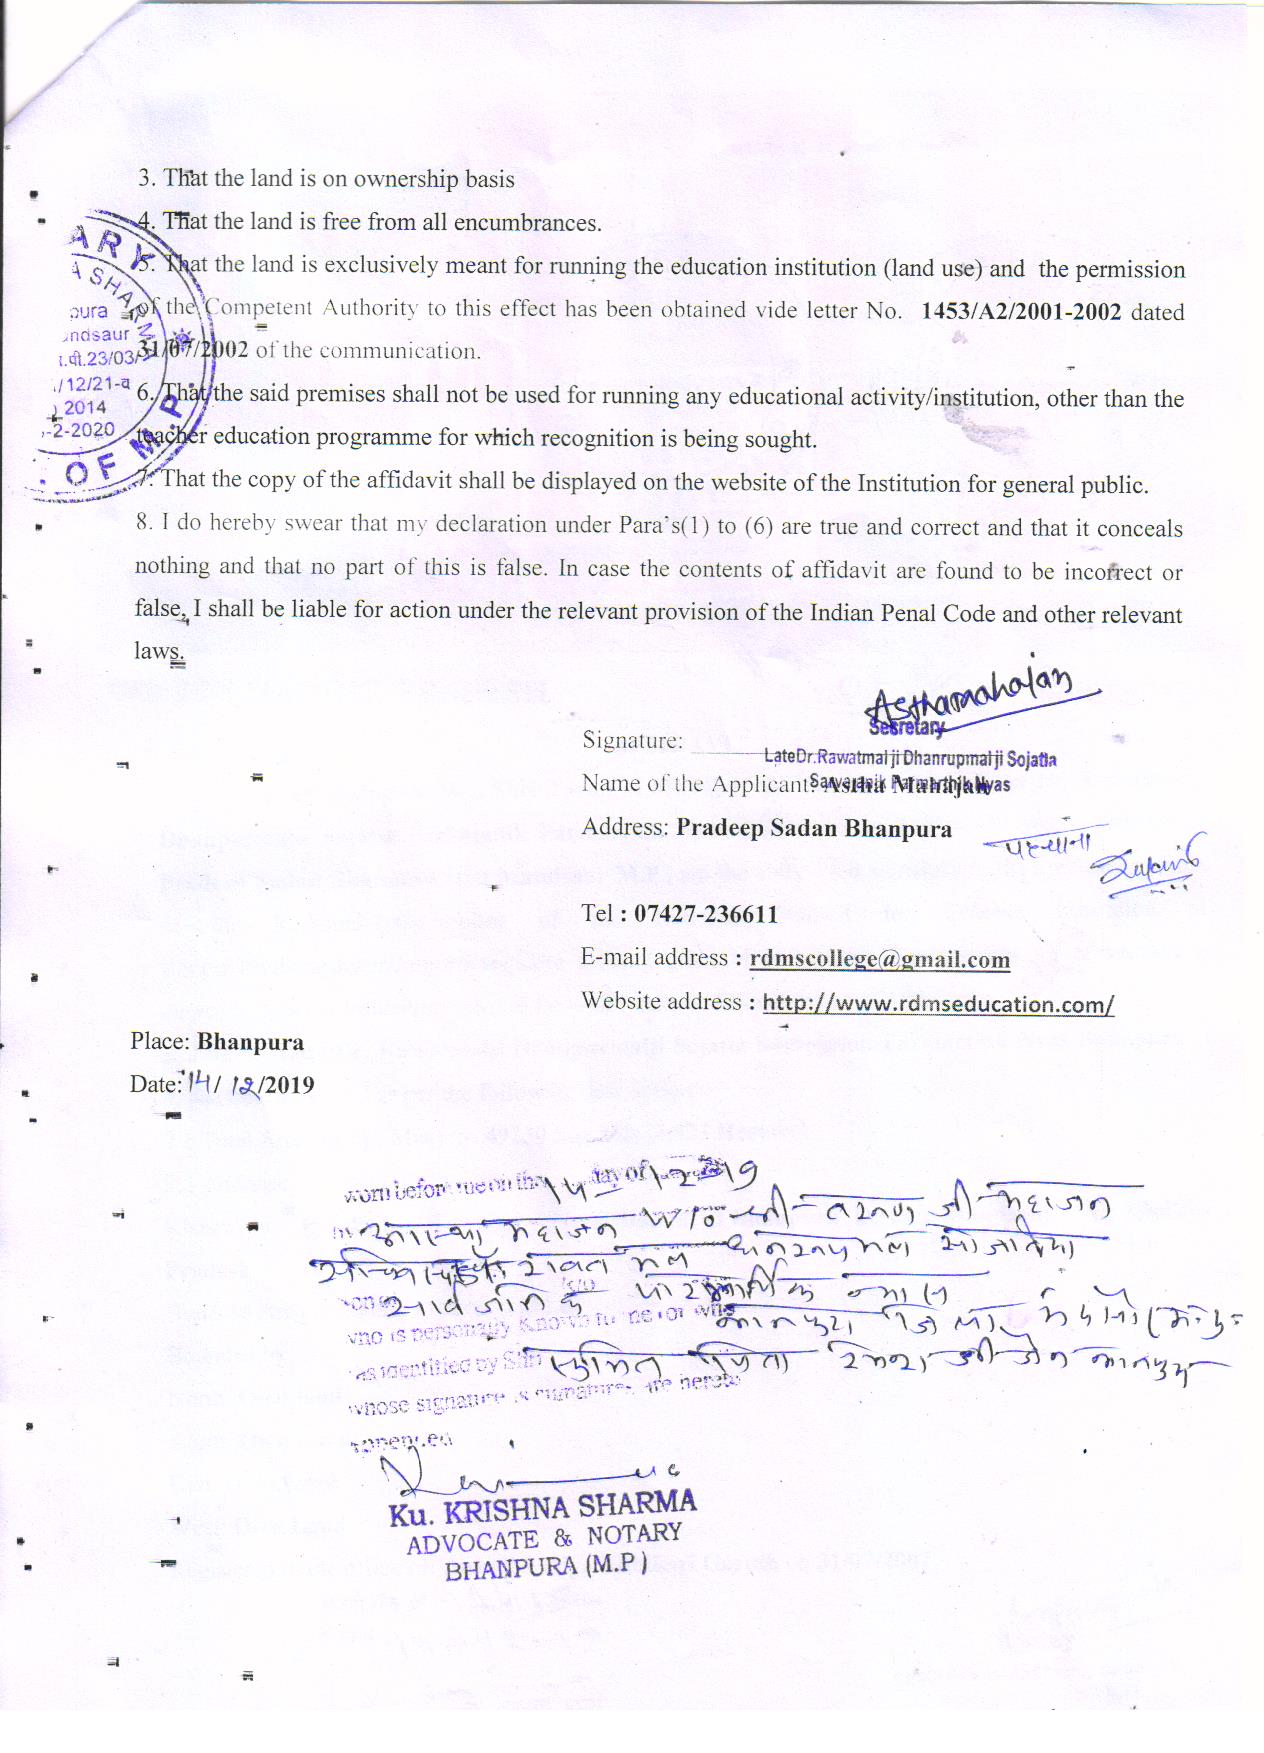 3. That the land is on ownership basis
4. That the land is free from all encumbrances.
5. That the land is exclusively meant for running the education institution (land use) and the permission
of the Competent Authority to this effect has been obtained vide letter No. 1453/A2/2001-2002 dated
31/07/2002 of the communication.
6. That the said premises shall not be used for running any educational activity/institution, other than the
teacher education programme for which recognition is being sought.
7. That the copy of the affidavit shall be displayed on the website of the Institution for general public.
8. I do hereby swear that my declaration under Para's(1) to (6) are true and correct and that it conceals
nothing and that no part of this is false. In case the contents of affidavit are found to be incorrect or
false, I shall be liable for action under the relevant provision of the Indian Penal Code and other relevant
laws.
ARY
A SHARMA
pura
ndsaur
2014
-2-2020
OF M.P.
Asthamahajan
Secretary
Signature:
Late Dr.Rawatmal ji Dhanrupmal ji Sojatia
Sarvajanik Parmarthik Nyas
Name of the Applicant: Astha Mahajan
Address: Pradeep Sadan Bhanpura
Tel : 07427-236611
E-mail address : rdmscollege@gmail.com
Website address : http://www.rdmseducation.com/
Place: Bhanpura
Date: 14/12/2019
worn before me on tha day of
आस्था महाजन W/o श्री जी महाजन
who is personally known to me or who
as identified by Shri
whose signature is signatures are hereto
Ku. KRISHNA SHARMA
ADVOCATE & NOTARY
BHANPURA (M.P)